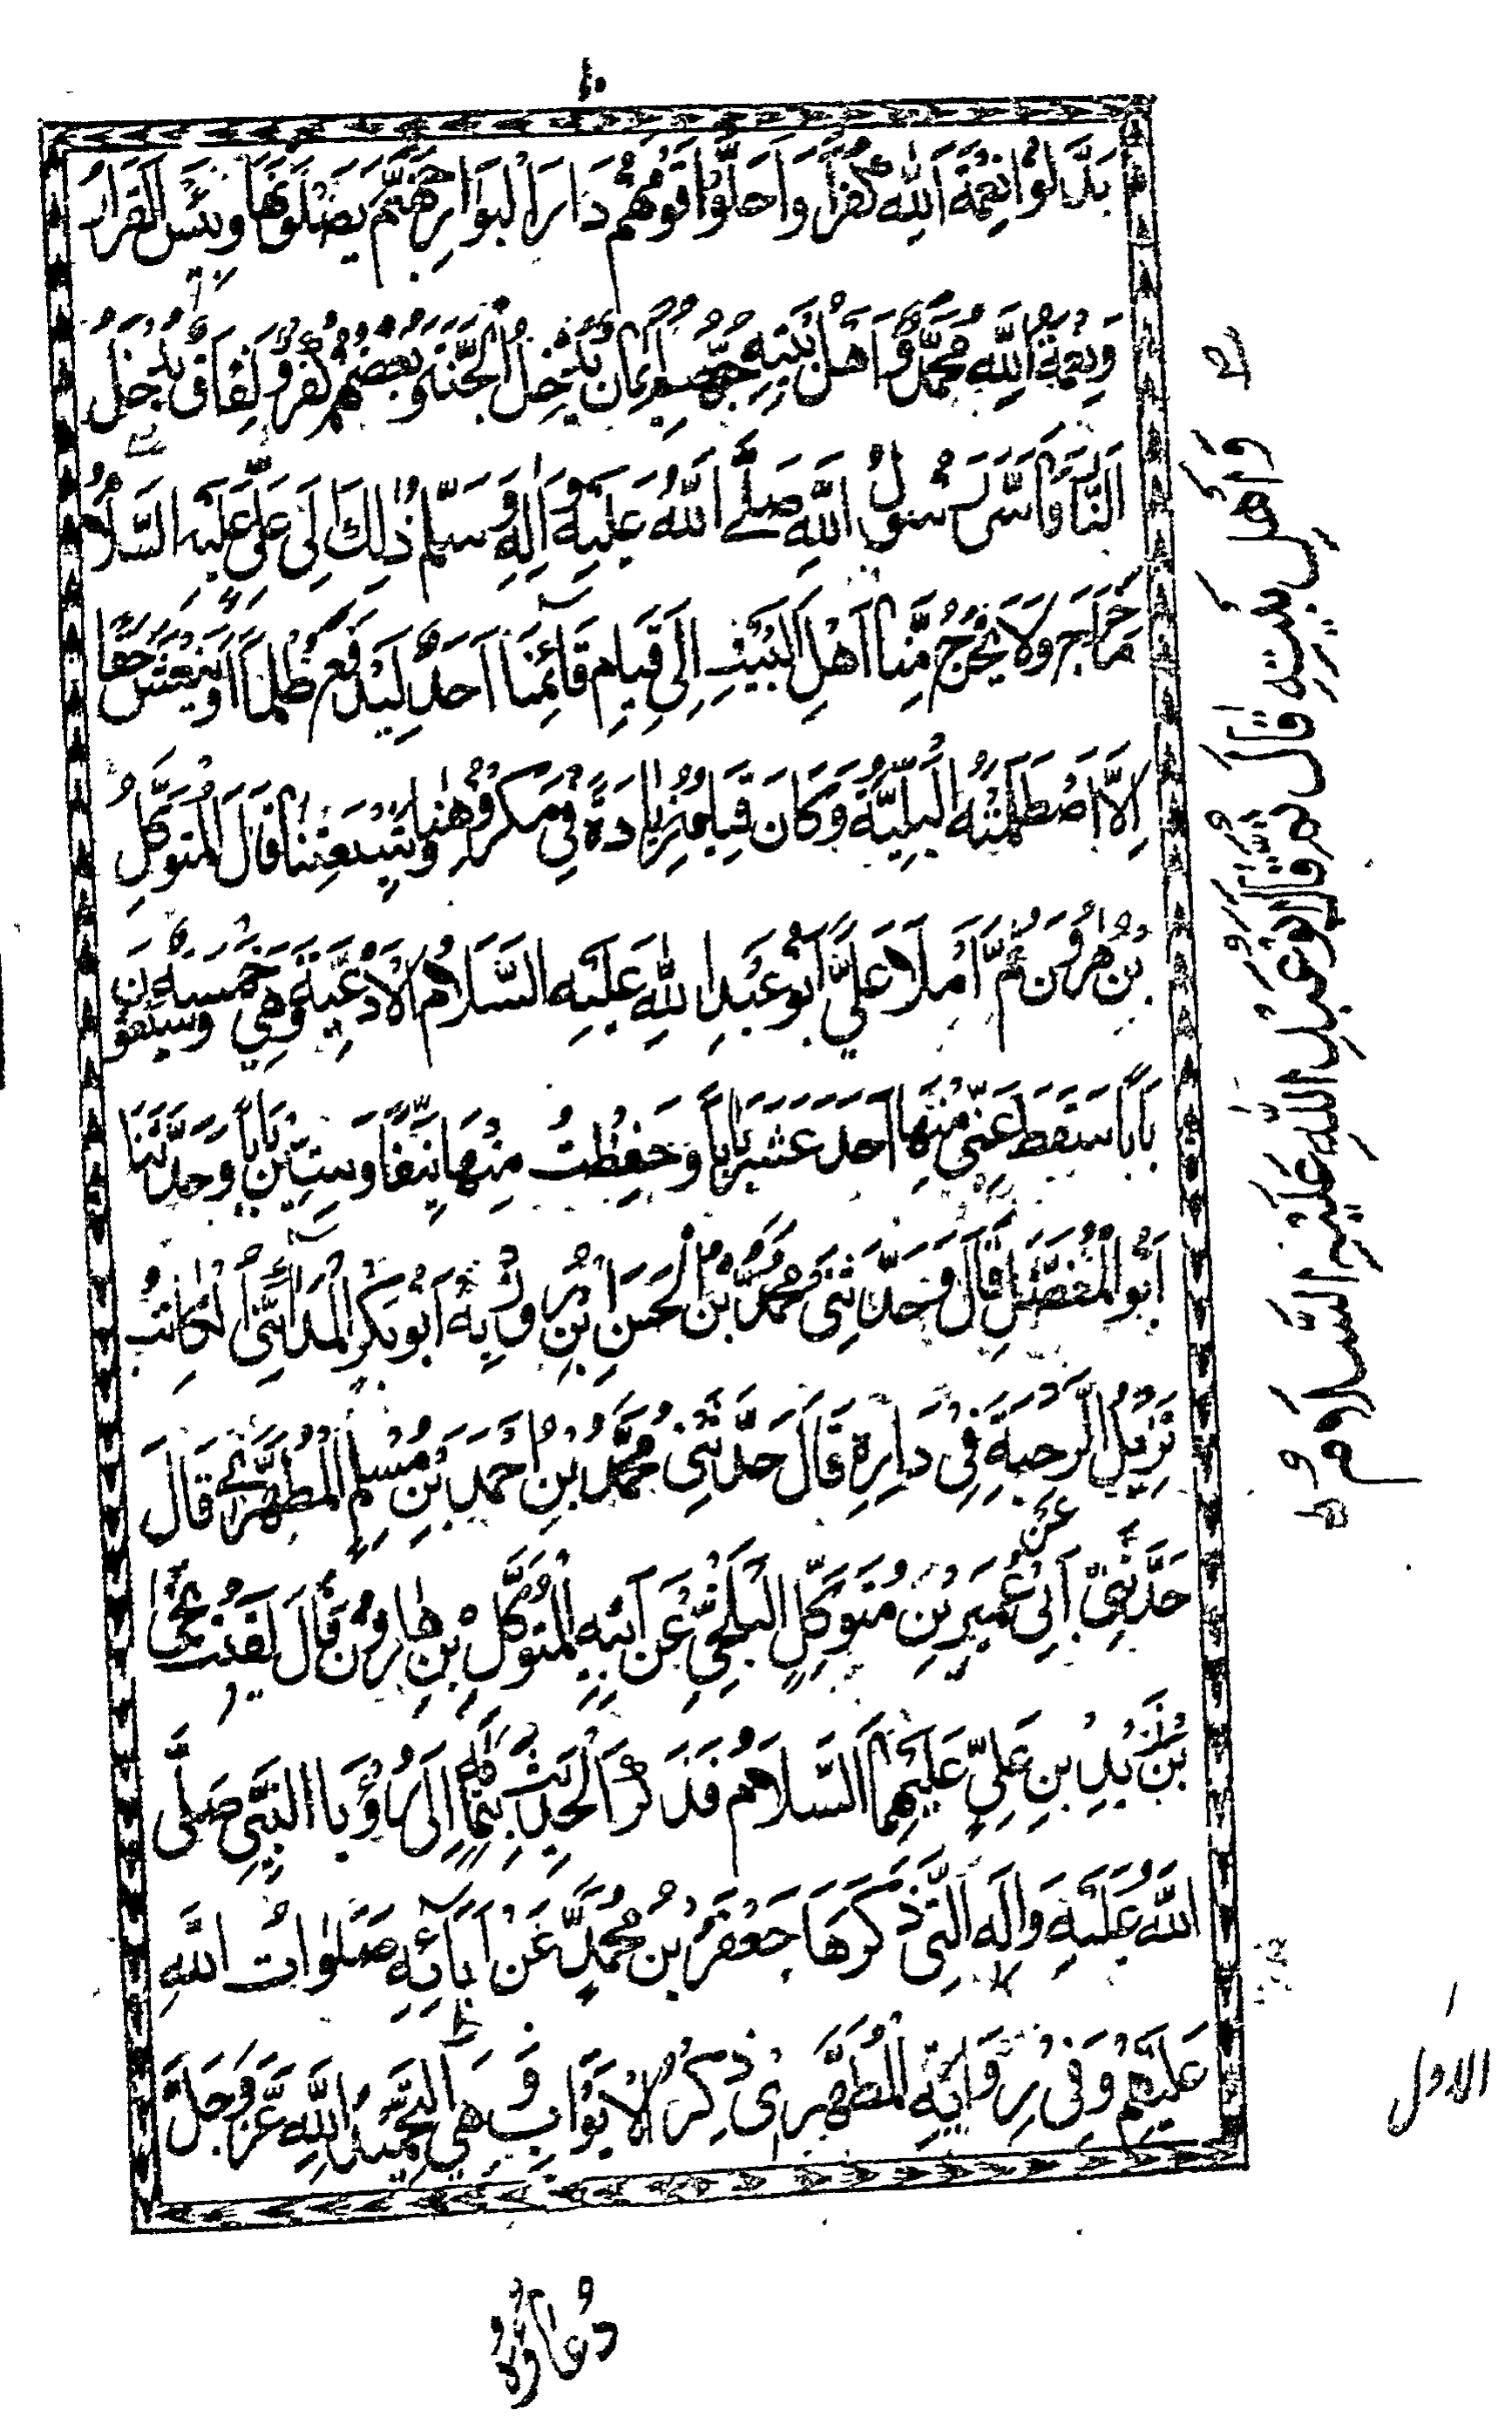 ١٠
بَدَّلُوا نِعْمَةَ اللهِ كُفْرًا وَاَحَلُّوا قَوْمَهُمْ دَارَ الْبَوَارِ جَهَنَّمَ يَصْلَوْنَهَا وَبِئْسَ الْقَرَارُ
وَنِعْمَةُ اللهِ مُحَمَّدٌ وَاَهْلُ بَيْتِهِ حُبُّهُمْ اِيمَانٌ يُدْخِلُ الْجَنَّةَ وَبُغْضُهُمْ كُفْرٌ وَنِفَاقٌ يُدْخِلُ
النَّارَ فَاَسَرَّ رَسُولُ اللهِ صَلَّى اللهُ عَلَيْهِ وَاٰلِهِ وَسَلَّمَ ذٰلِكَ اِلَى عَلِىٍّ عَلَيْهِ السَّلَامُ
مَا خَرَجَ وَلَا يَخْرُجُ مِنَّا اَهْلِ الْبَيْتِ اِلَى قِيَامِ قَائِمِنَا اَحَدٌ لِيَدْفَعَ ظُلْمًا اَوْ يَنْعَشَ حَقًّا
اِلَّا اصْطَلَمَتْهُ الْبَلِيَّةُ وَكَانَ قِيَامُهُ زِيَادَةً فِى مَكْرُوهِنَا وَشِيعَتِنَا قَالَ الْمُتَوَكِّلُ
بْنُ هٰرُونَ ثُمَّ اَمْلَا عَلَىَّ اَبُو عَبْدِ اللهِ عَلَيْهِ السَّلَامُ الْاَدْعِيَةَ وَهِىَ خَمْسَةٌ وَسَبْعُونَ
بَابًا سَقَطَ عَنِّى مِنْهَا اَحَدَ عَشَرَ بَابًا وَحَفِظْتُ مِنْهَا نَيِّفًا وَسِتِّينَ بَابًا وَحَدَّثَنَا
اَبُو الْمُفَضَّلِ قَالَ وَحَدَّثَنِى مُحَمَّدُ بْنُ الْحَسَنِ بْنِ رُوزْبِهْ اَبُو بَكْرٍ الْمَدَائِنِىُّ الْكَاتِبُ
نَزِيلُ الرَّحْبَةِ فِى دَارِهِ قَالَ حَدَّثَنِى مُحَمَّدُ بْنُ اَحْمَدَ بْنِ مُسْلِمٍ الْمُطَهَّرِىُّ قَالَ
حَدَّثَنِى اَبِى عَنْ عُمَيْرِ بْنِ مُتَوَكِّلٍ الْبَلْخِىِّ عَنْ اَبِيهِ الْمُتَوَكِّلِ بْنِ هَارُونَ قَالَ لَقِيتُ يَحْيَى
بْنَ زَيْدِ بْنِ عَلِىٍّ عَلَيْهِمَا السَّلَامُ فَذَكَرَ الْحَدِيثَ بِتَمَامِهِ اِلَى رُؤْيَا النَّبِىِّ صَلَّى
اللهُ عَلَيْهِ وَاٰلِهِ الَّتِى ذَكَرَهَا جَعْفَرُ بْنُ مُحَمَّدٍ عَنْ اٰبَائِهِ صَلَوَاتُ اللهِ
عَلَيْهِمْ وَفِى رِوَايَةِ الْمُطَهَّرِى ذِكْرُ الْاَبْوَابِ وَهِىَ التَّحْمِيدُ لِلهِ عَزَّ وَجَلَّ
وَاَهْلِ بَيْتِهِ قَالَ ثُمَّ قَالَ اَبُو عَبْدِ اللهِ عَلَيْهِ السَّلَامُ
الاول
دُعَاؤُهُ